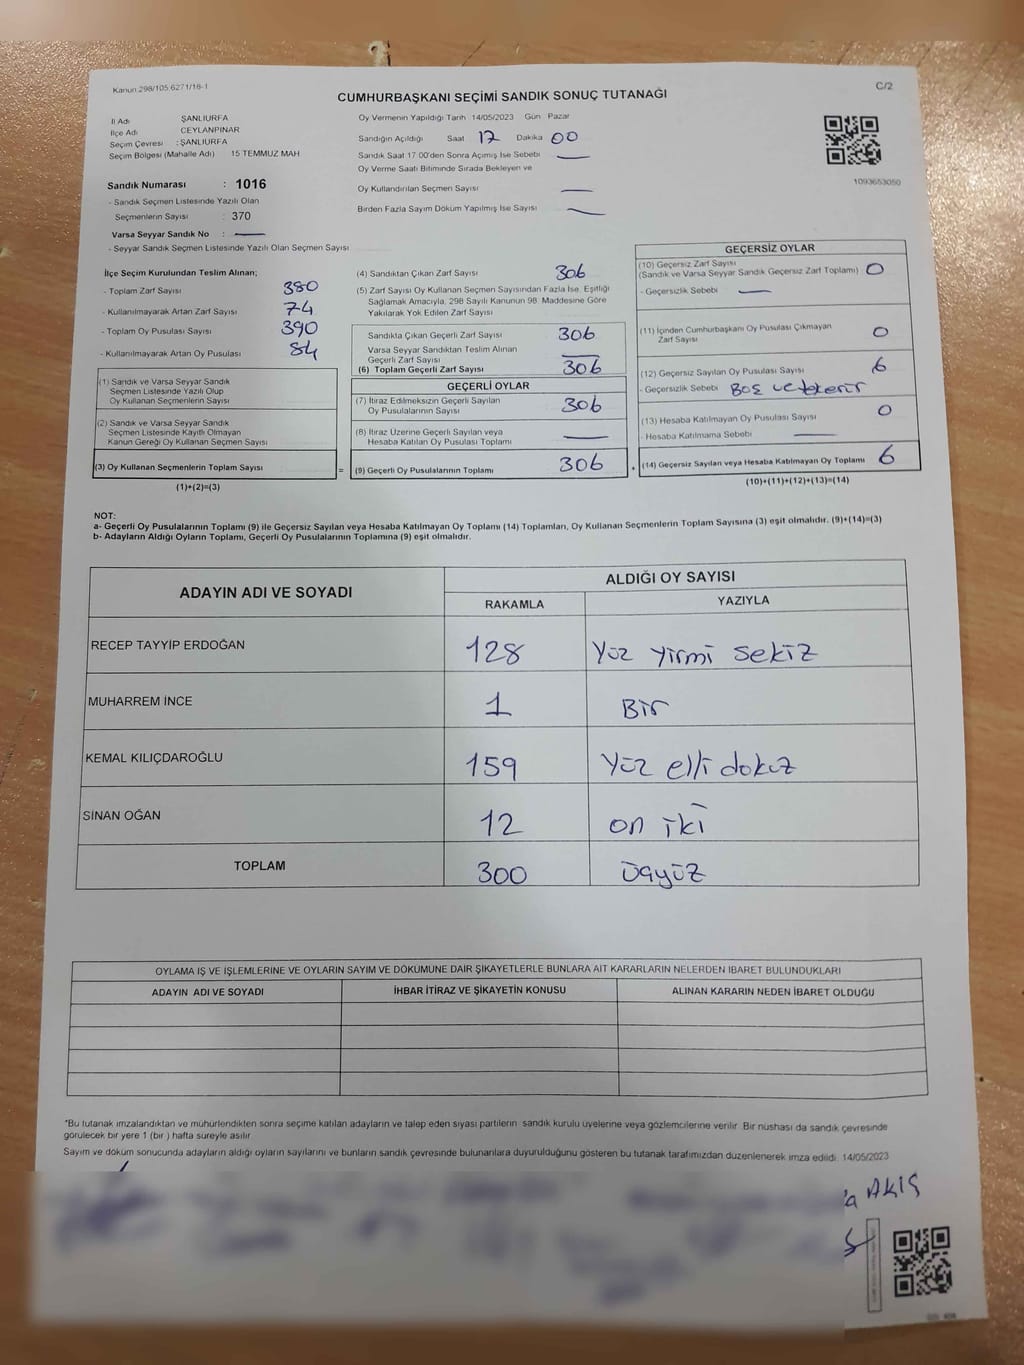 Kanun 298/105 6271/18-1
C/2
CUMHURBAŞKANI SEÇİMİ SANDIK SONUÇ TUTANAĞI
İl Adı ŞANLIURFA
İlçe Adı CEYLANPINAR
Seçim Çevresi : ŞANLIURFA
Seçim Bölgesi (Mahalle Adı) 15 TEMMUZ MAH
Sandık Numarası : 1016
- Sandık Seçmen Listesinde Yazılı Olan
Seçmenlerin Sayısı : 370
Varsa Seyyar Sandık No :
- Seyyar Sandık Seçmen Listesinde Yazılı Olan Seçmen Sayısı
Oy Vermenin Yapıldığı Tarih 14/05/2023 Gün Pazar
Sandığın Açıldığı Saat 17 Dakika 00
Sandık Saat 17 00'den Sonra Açımış İse Sebebi
Oy Verme Saati Bitiminde Sırada Bekleyen ve
Oy Kullandırılan Seçmen Sayısı
Birden Fazla Sayım Döküm Yapılmış İse Sayısı
1093653050
İlçe Seçim Kurulundan Teslim Alınan;
- Toplam Zarf Sayısı 380
- Kullanılmayarak Artan Zarf Sayısı 74
- Toplam Oy Pusulası Sayısı 390
- Kullanılmayarak Artan Oy Pusulası 84
(1) Sandık ve Varsa Seyyar Sandık
Seçmen Listesinde Yazılı Olup
Oy Kullanan Seçmenlerin Sayısı
(2) Sandık ve Varsa Seyyar Sandık
Seçmen Listesinde Kayıtlı Olmayan
Kanun Gereği Oy Kullanan Seçmen Sayısı
(3) Oy Kullanan Seçmenlerin Toplam Sayısı =
(1)+(2)=(3)
(4) Sandıktan Çıkan Zarf Sayısı 306
(5) Zarf Sayısı Oy Kullanan Seçmen Sayısından Fazla İse, Eşitliği
Sağlamak Amacıyla, 298 Sayılı Kanunun 98. Maddesine Göre
Yakılarak Yok Edilen Zarf Sayısı
Sandıkta Çıkan Geçerli Zarf Sayısı 306
Varsa Seyyar Sandıktan Teslim Alınan
Geçerli Zarf Sayısı
(6) Toplam Geçerli Zarf Sayısı 306
GEÇERLİ OYLAR
(7) İtiraz Edilmeksizin Geçerli Sayılan
Oy Pusulalarının Sayısı 306
(8) İtiraz Üzerine Geçerli Sayılan veya
Hesaba Katılan Oy Pusulası Toplamı
(9) Geçerli Oy Pusulalarının Toplamı 306 +
GEÇERSİZ OYLAR
(10) Geçersiz Zarf Sayısı
(Sandık ve Varsa Seyyar Sandık Geçersiz Zarf Toplamı) 0
- Geçersizlik Sebebi
(11) İçinden Cumhurbaşkanı Oy Pusulası Çıkmayan
Zarf Sayısı 0
(12) Geçersiz Sayılan Oy Pusulası Sayısı 6
- Geçersizlik Sebebi Boş ve tekerir
(13) Hesaba Katılmayan Oy Pusulası Sayısı 0
- Hesaba Katılmama Sebebi
(14) Geçersiz Sayılan veya Hesaba Katılmayan Oy Toplamı 6
(10)+(11)+(12)+(13)=(14)
NOT:
a- Geçerli Oy Pusulalarının Toplamı (9) ile Geçersiz Sayılan veya Hesaba Katılmayan Oy Toplamı (14) Toplamları, Oy Kullanan Seçmenlerin Toplam Sayısına (3) eşit olmalıdır. (9)+(14)=(3)
b- Adayların Aldığı Oyların Toplamı, Geçerli Oy Pusulalarının Toplamına (9) eşit olmalıdır.
ADAYIN ADI VE SOYADI
ALDIĞI OY SAYISI
RAKAMLA YAZIYLA
RECEP TAYYİP ERDOĞAN 128 Yüz yirmi sekiz
MUHARREM İNCE 1 Bir
KEMAL KILIÇDAROĞLU 159 Yüz elli dokuz
SİNAN OĞAN 12 on iki
TOPLAM 300 üçyüz
OYLAMA İŞ VE İŞLEMLERİNE VE OYLARIN SAYIM VE DÖKÜMÜNE DAİR ŞİKAYETLERLE BUNLARA AİT KARARLARIN NELERDEN İBARET BULUNDUKLARI
ADAYIN ADI VE SOYADI İHBAR İTİRAZ VE ŞİKAYETİN KONUSU ALINAN KARARIN NEDEN İBARET OLDUĞU
*Bu tutanak imzalandıktan ve mühürlendikten sonra seçime katılan adayların ve talep eden siyasi partilerin sandık kurulu üyelerine veya gözlemcilerine verilir. Bir nüshası da sandık çevresinde
görülecek bir yere 1 (bir) hafta süreyle asılır
Sayım ve döküm sonucunda adayların aldığı oyların sayılarını ve bunların sandık çevresinde bulunanlara duyurulduğunu gösteren bu tutanak tarafımızdan düzenlenerek imza edildi. 14/05/2023
AKIŞ